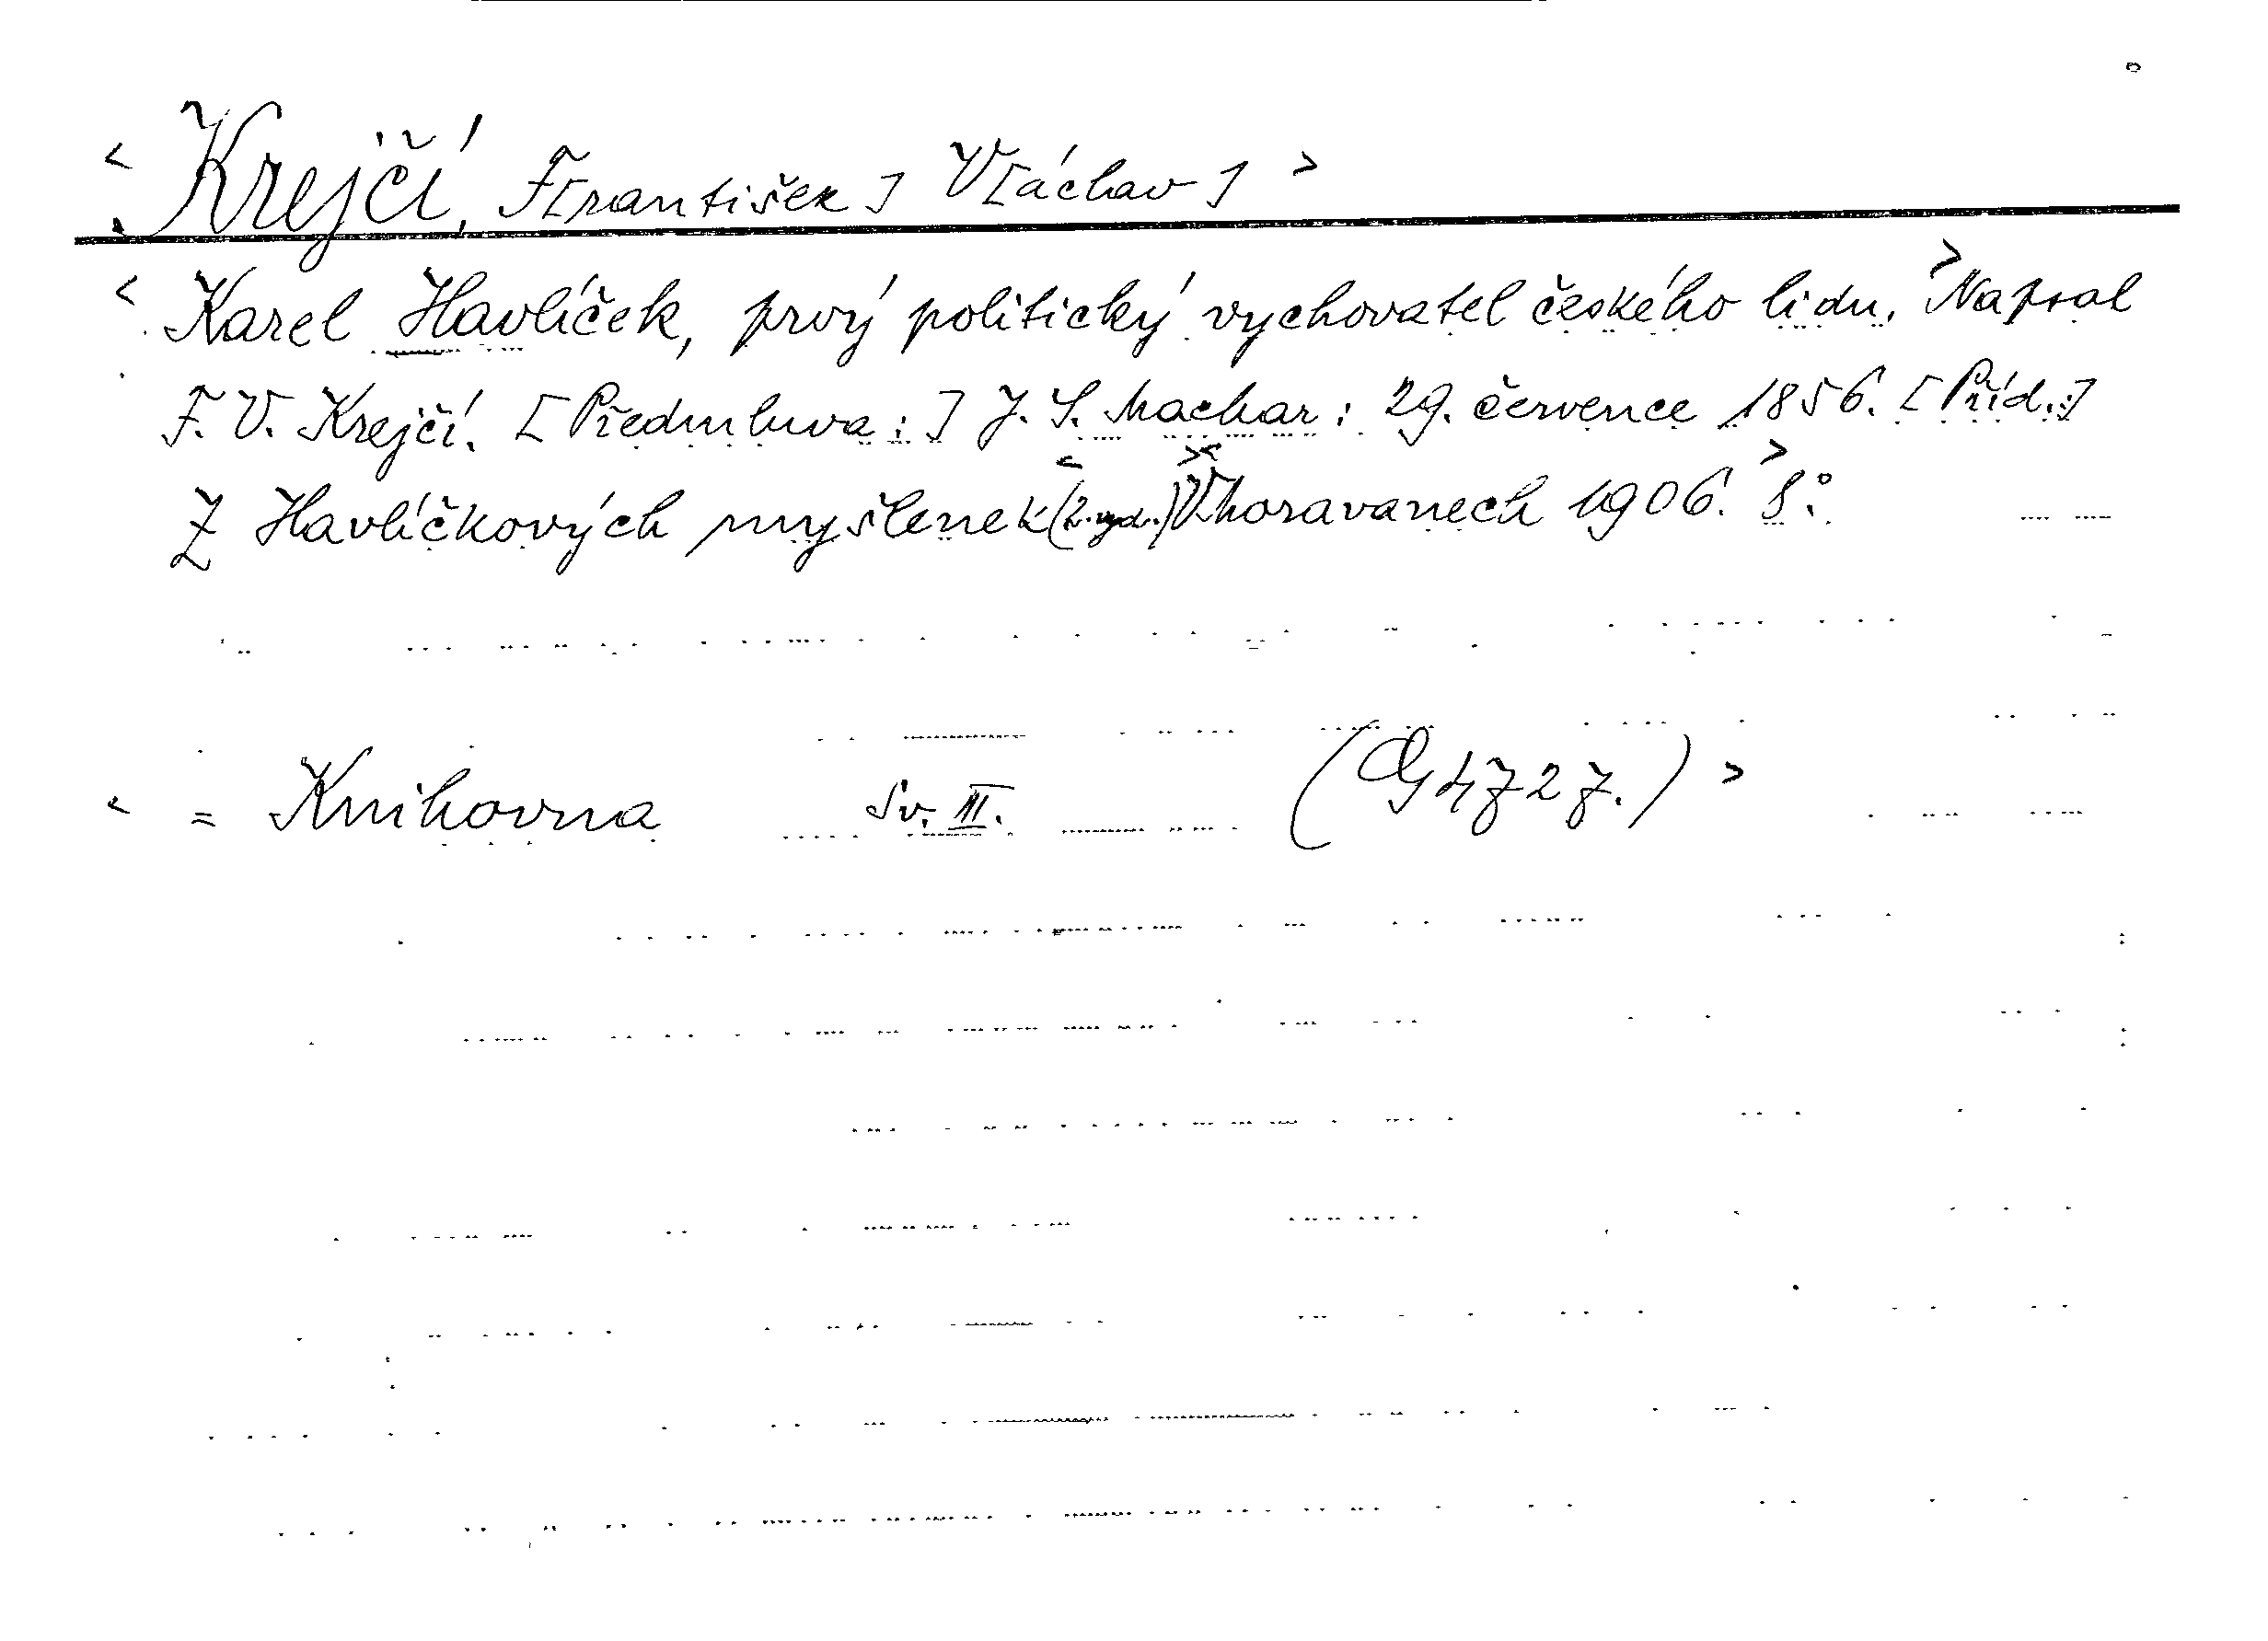 < Krejčí, F[rantišek] V[áchav] >
< Karel Havlíček, prvý politický vychovatel českého lidu. > Napsal
F. V. Krejčí. [Předmluva:] J. S. Machar: 29. července 1856. [Příd.:]
Z Havlíčkových myšlenek < (2. vyd.) >< V Moravanech 1906. > 8°
< = Knihovna Sv. III. (G4727.) >